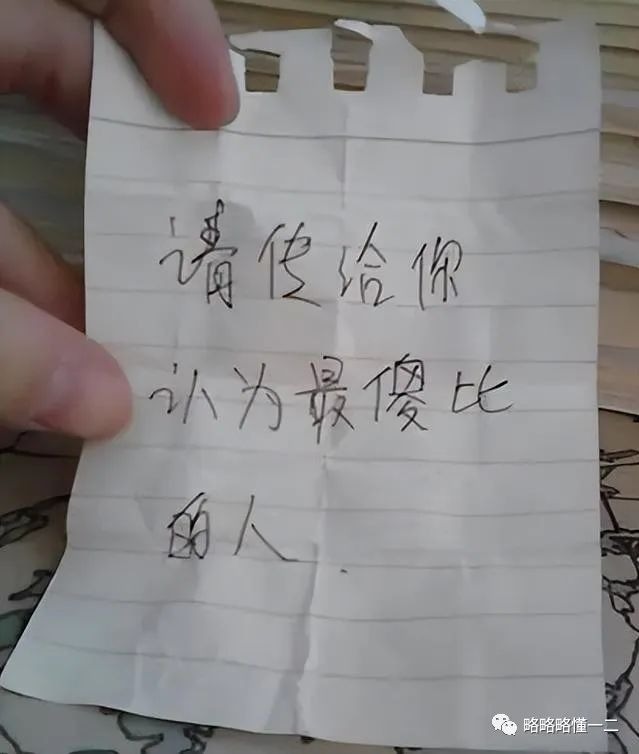 请传给你
认为最傻比
的人.
略略略懂一二